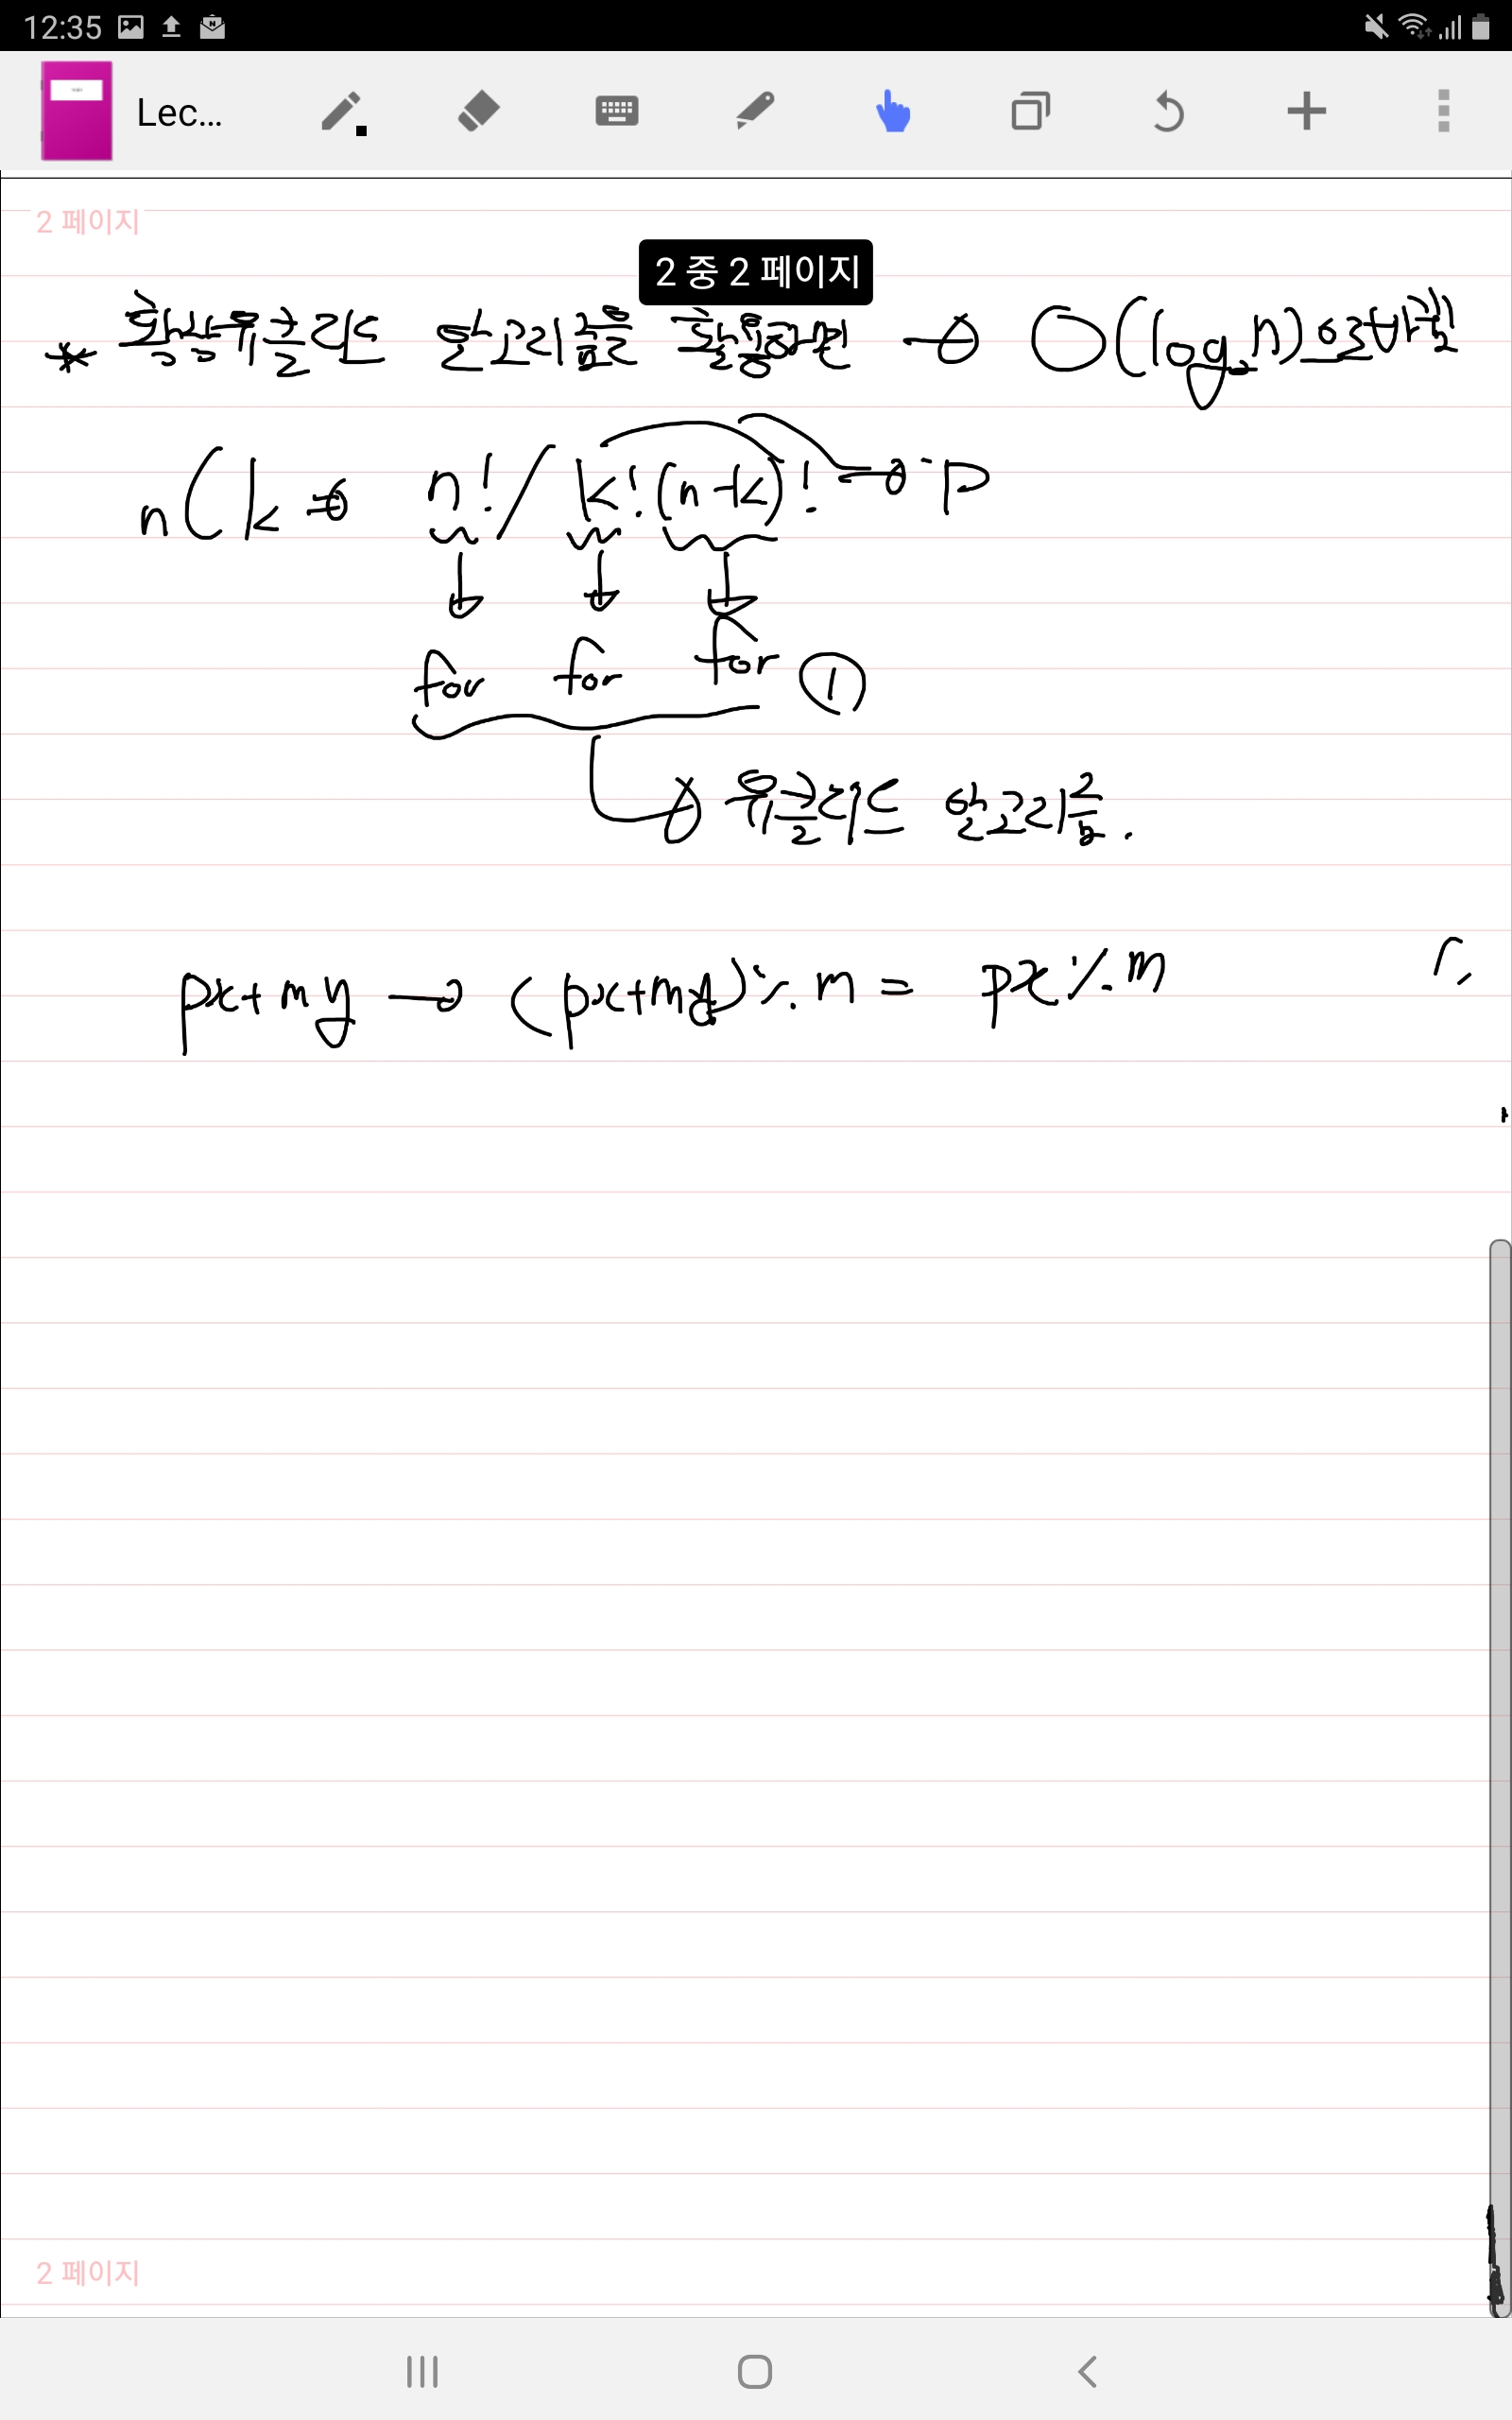 12:35
Lec...
2 페이지
2 중 2 페이지
* 확장유클리드 알고리즘을 활용하면 → O(log₂n)
nCk ⇒ n! / k!(n-k)! → p
for for for ①
유클리드 알고리즘.
px+my → (px+my)%m = px%m
2 페이지